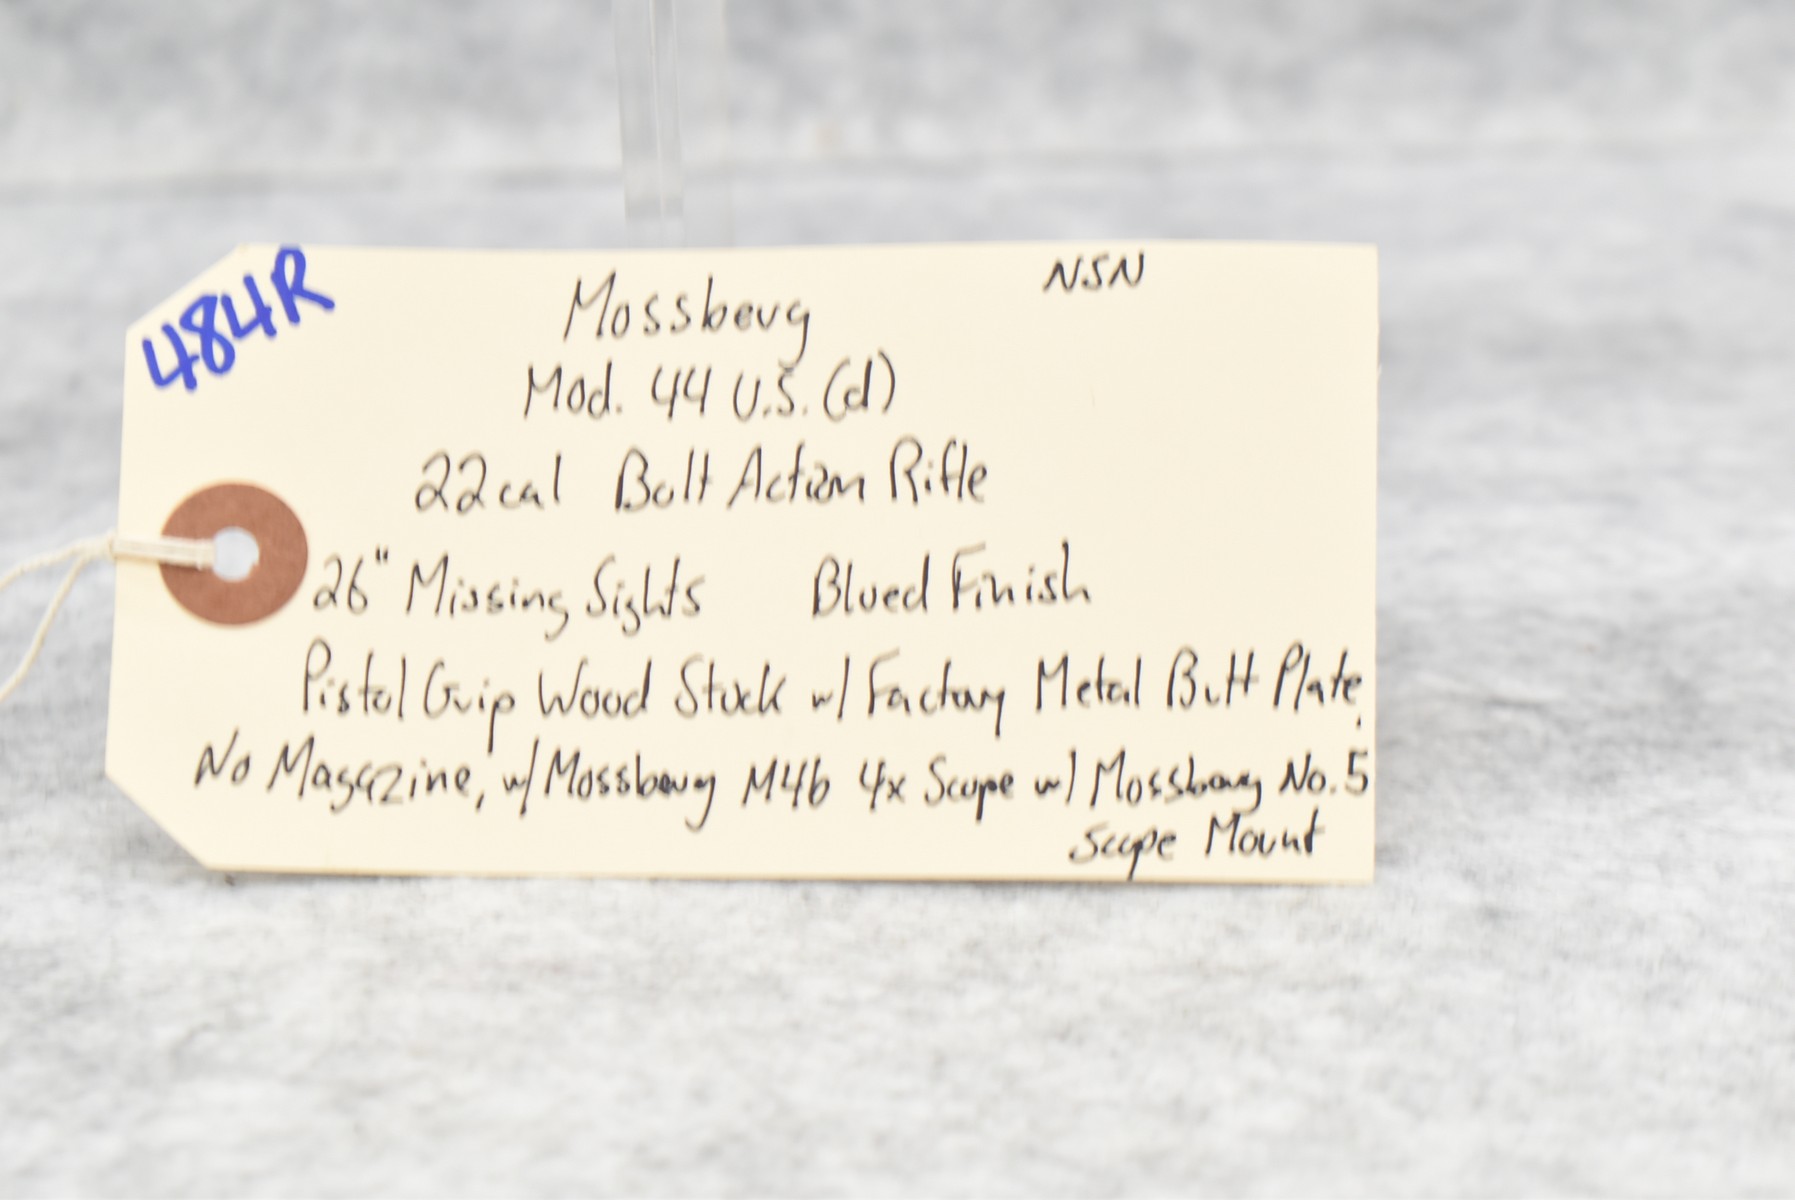 484R
NSN
Mossberg
Mod. 44 U.S. (d)
22cal Bolt Action Rifle
26" Missing Sights Blued Finish
Pistol Grip Wood Stock w/ Factory Metal Butt Plate,
No Magazine, w/ Mossberg M4b 4x Scope w/ Mossberg No. 5
Scope Mount